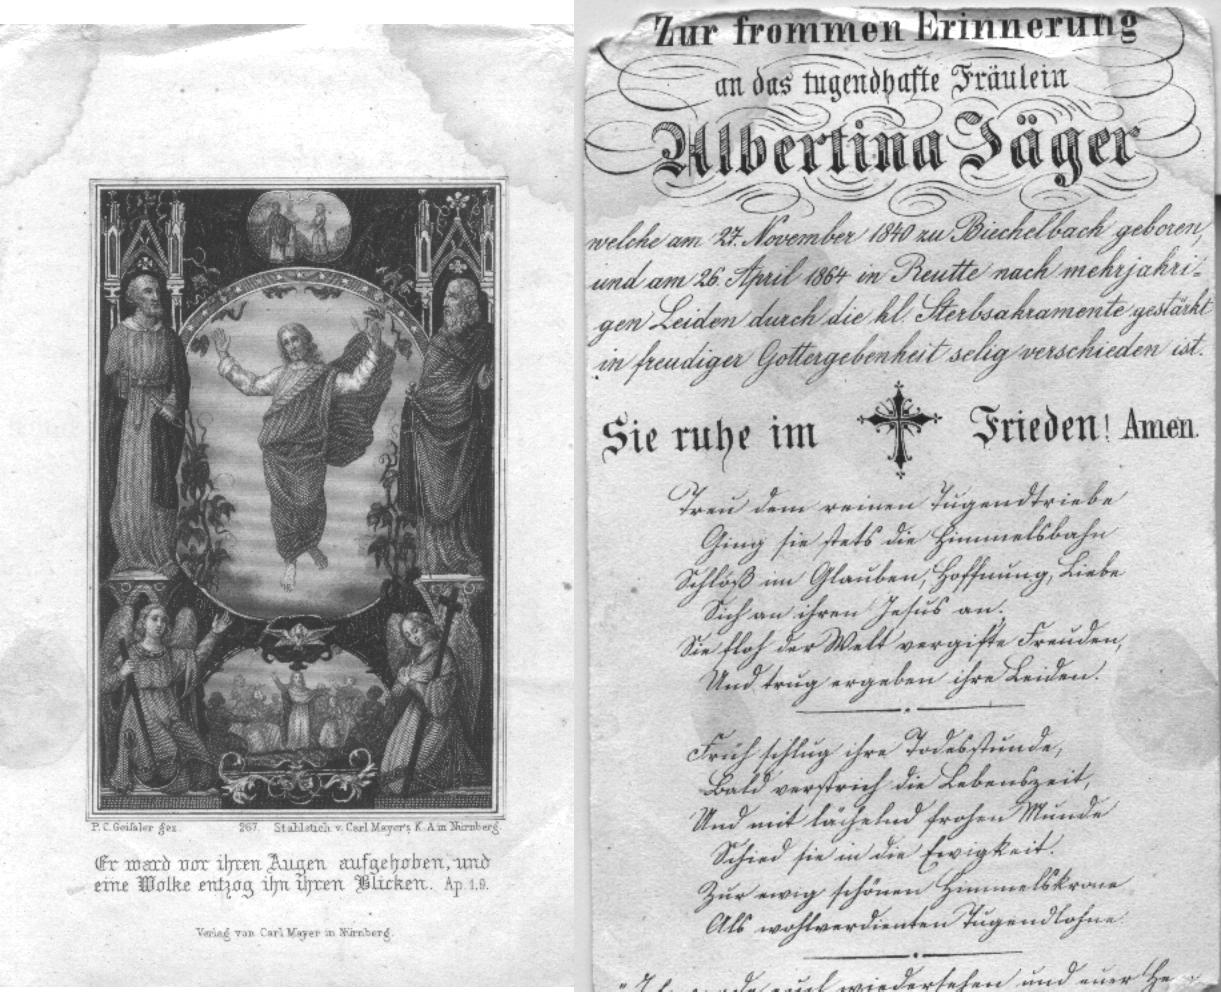 P. C. Geißler gez. 267. Stahlstich v. Carl Mayer's K. A. in Nürnberg.
Er ward vor ihren Augen aufgehoben, und
eine Wolke entzog ihn ihren Blicken. Ap. 1.9.
Verlag von Carl Mayer in Nürnberg.
Zur frommen Erinnerung
an das tugendhafte Fräulein
Albertina Jäger
welche am 27. November 1840 zu Biechelbach geboren,
und am 26. April 1864 in Reutte nach mehrjähri-
gen Leiden durch die hl. Sterbsakramente gestärkt
in freudiger Gottergebenheit selig verschieden ist.
Sie ruhe im Frieden! Amen.
Treu dem reinen Tugendtriebe
Ging sie stets die Himmelsbahn
Schloß im Glauben, Hoffnung, Liebe
Sich an ihren Jesus an.
Sie floh der Welt vergifte Freuden,
Und trug ergeben ihre Leiden.
Früh schlug ihre Todesstunde,
Bald verstrich die Lebenszeit,
Und mit lächelnd frohen Munde
Schied sie in die Ewigkeit.
Zur ewig schönen Himmelskrone
Als wohlverdienten Tugendlohne
wiedersehen und euer